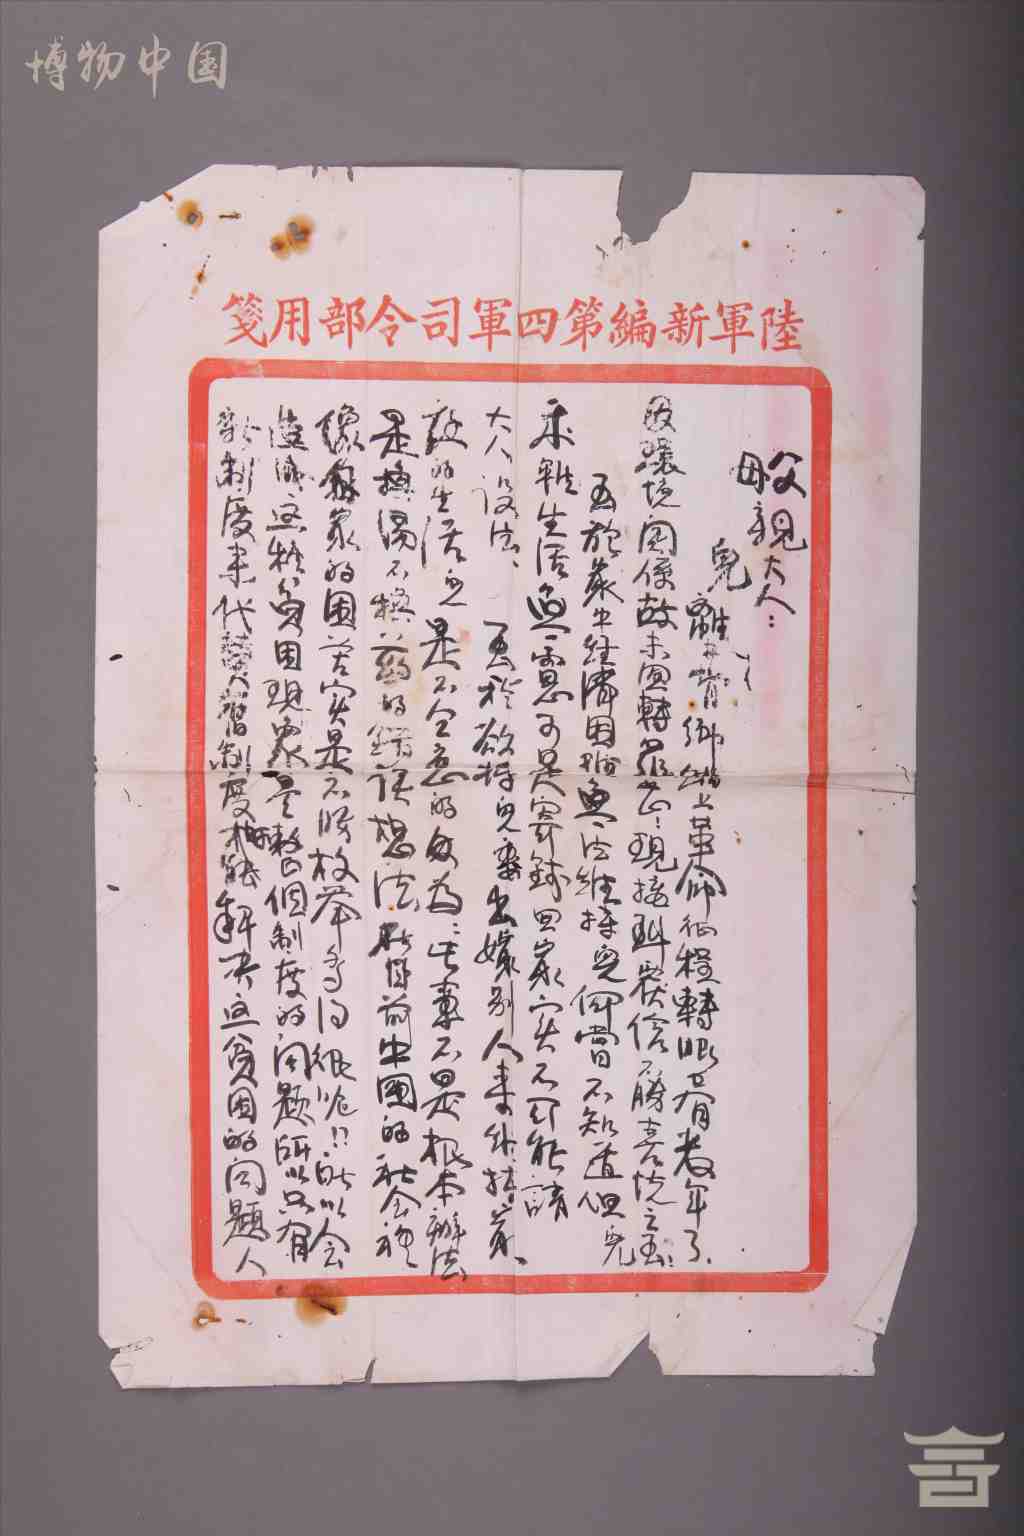 博物中国
陸軍新編第四軍司令部用箋
父
母親大人：
兒離背鄉踏上革命征程轉眼已有數年了、
因環境関係故未回轉家!現接到家信不勝喜悅之至;
至於家中経濟困難無法維持兒何嘗不知道但兒
乘戰生活無需可是寄錢回家实不可能請
大人設法、至於欲將兒妻出嫁別人来維持家
庭的生活兒是不同意的因為:此事不是根本辦法
是換湯不換药的錯誤想法在目前中國的社会裡
像我家的困苦实是不勝枚举多得很呢!!所以会
造成这種貧困現象是整個制度的問題所以只有
新制度来代替舊制度才能解决这貧困的問題人